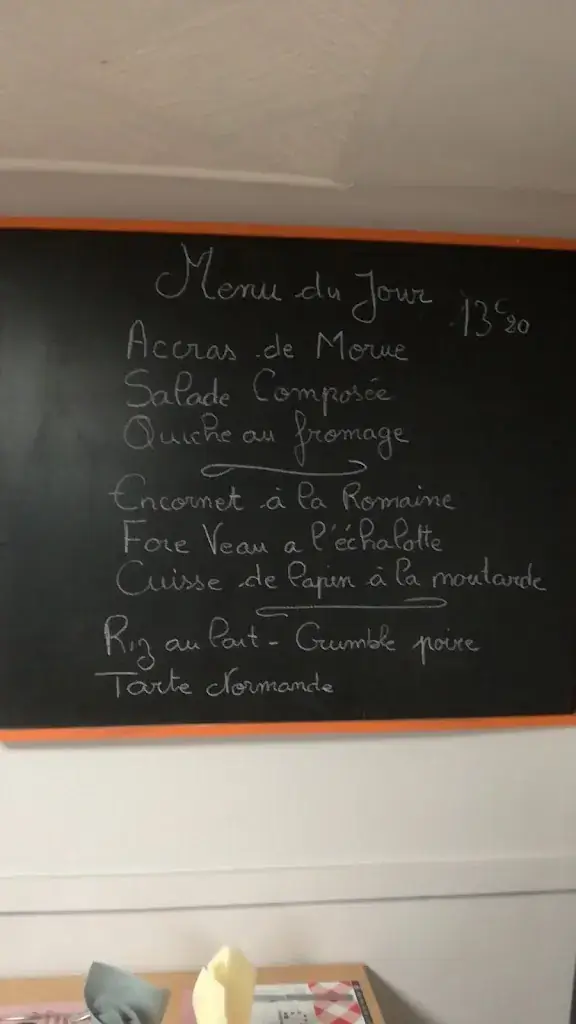 Menu du Jour 13€20
Accras de Morue
Salade Composée
Quiche au fromage
Encornet à la Romaine
Foie Veau a l'échalotte
Cuisse de lapin à la moutarde
Riz au lait - Crumble poire
Tarte Normande